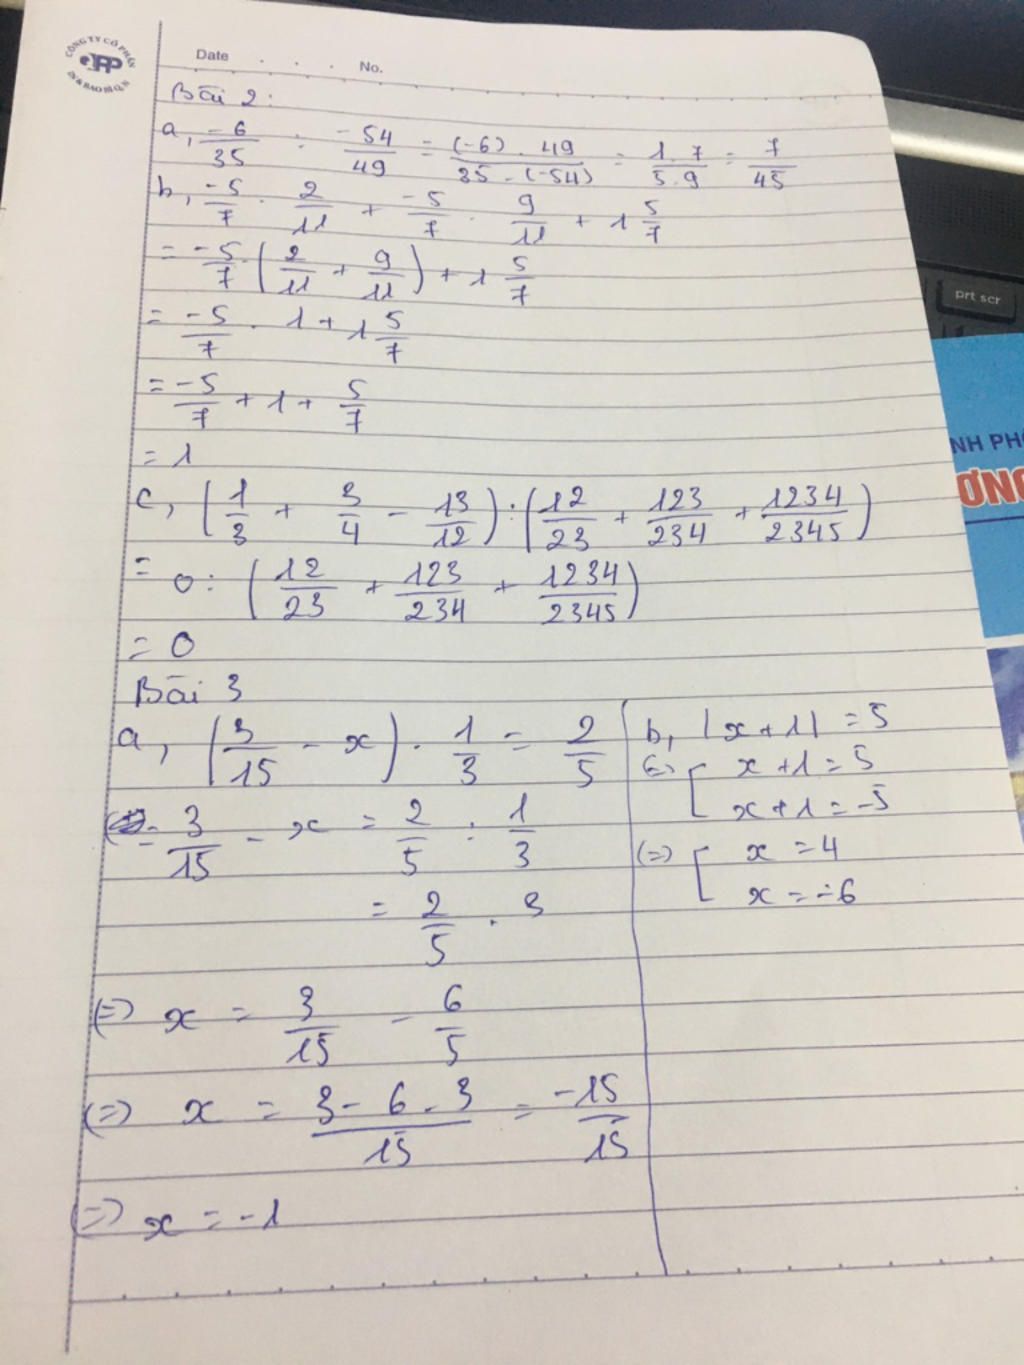 CÔNG TY CỔ PHẦN
IN & BAO BÌ Q.N
Date . . . No.
Bài 2:
a, -6/35 : -54/49 = (-6) . 49/35 . (-54) = 1.7/5.9 = 7/45
b, -5/7 . 2/11 + -5/7 . 9/11 + 1 5/7
= -5/7 . (2/11 + 9/11) + 1 5/7
= -5/7 . 1 + 1 5/7
= -5/7 + 1 + 5/7
= 1
c, (1/3 + 3/4 - 13/12) : (12/23 + 123/234 + 1234/2345)
= 0 : (12/23 + 123/234 + 1234/2345)
= 0
Bài 3
a, (3/15 - x) . 1/3 = 2/5
= 3/15 - x = 2/5 : 1/3
= 2/5 . 3
(=) x = 3/15 - 6/5
(=) x = 3 - 6 . 3/15 = -15/15
(=) x = -1
b, |x + 1| = 5
(=) [ x + 1 = 5
x + 1 = -5
(=) [ x = 4
x = -6
prt scr
NH PH
ƠNG